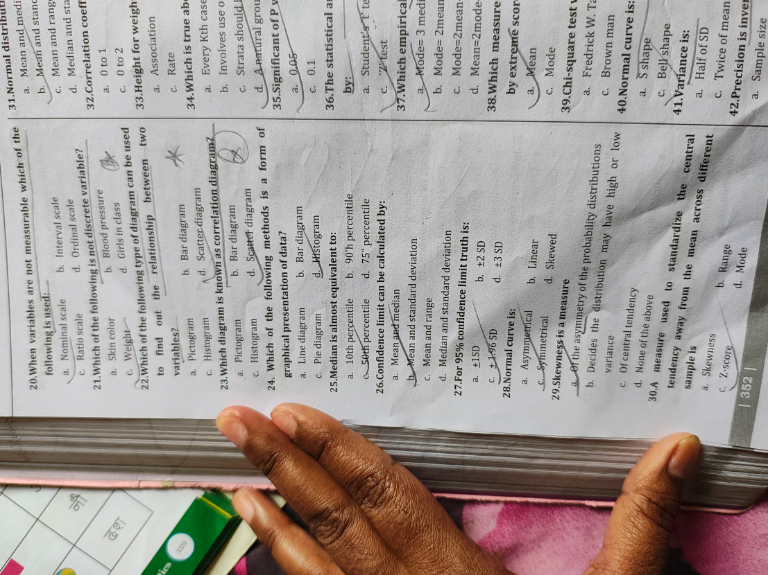 20.When variables are not measurable which of the
following is used....
a. Nominal scale b. Interval scale
c. Ratio scale d. Ordinal scale
21.Which of the following is not discrete variable?
a. Skin color b. Blood pressure
c. Weight d. Girls in class
22.Which of the following type of diagram can be used
to find out the relationship between two
variables?
a. Pictogram b. Bar diagram
c. Histogram d. Scatter diagram
23.Which diagram is known as correlation diagram?
a. Pictogram b. Bar diagram
c. Histogram d. Scatter diagram
24. Which of the following methods is a form of
graphical presentation of data?
a. Line diagram b. Bar diagram
c. Pie diagram d. Histogram
25.Median is almost equivalent to:
a. 10th percentile b. 90'h percentile
c. 50th percentile d. 75" percentile
26.Confidence limit can be calculated by:
a. Mean and median
b. Mean and standard deviation
c. Mean and range
d. Median and standard deviation
27.For 95% confidence limit truth is:
a. ±1SD b. ±2 SD
c. ±1.96 SD d. ±3 SD
28.Normal curve is:
a. Asymmetrical b. Linear
c. Symmetrical d. Skewed
29.Skewness is a measure
a. Of the asymmetry of the probability distributions
b. Decides the distribution may have high or low
variance
c. Of central tendency
d. None of the above
30.A measure used to standardize the central
tendency away from the mean across different
sample is
a. Skewness b. Range
c. Z-score d. Mode
| 352 |
31.Normal distribut
a. Mean and medi
b. Mean and stand
c. Mean and rang
d. Median and sta
32.Correlation coeff
a. 0 to 1
c. 0 to 2
33.Height for weigh
a. Association
c. Rate
34.Which is true ab
a. Every Kth case
b. Involves use o
c. Strata should
d. A natural grou
35.Significant of P v
a. 0.05
c. 0.1
36.The statistical ar
by:
a. Student's t te
c. 'Z' test
37.Which empirical
a. Mode= 3 medi
b. Mode= 2mean
c. Mode=2mean-
d. Mean=2mode
38.Which measure
by extreme scor
a. Mean
c. Mode
39.Chi-square test
a. Fredrick W. Ta
c. Brown man
40.Normal curve is:
a. S shape
c. Bell shape
41.Variance is:
a. Half of SD
c. Twice of mean
42.Precision is inver
a. Sample size